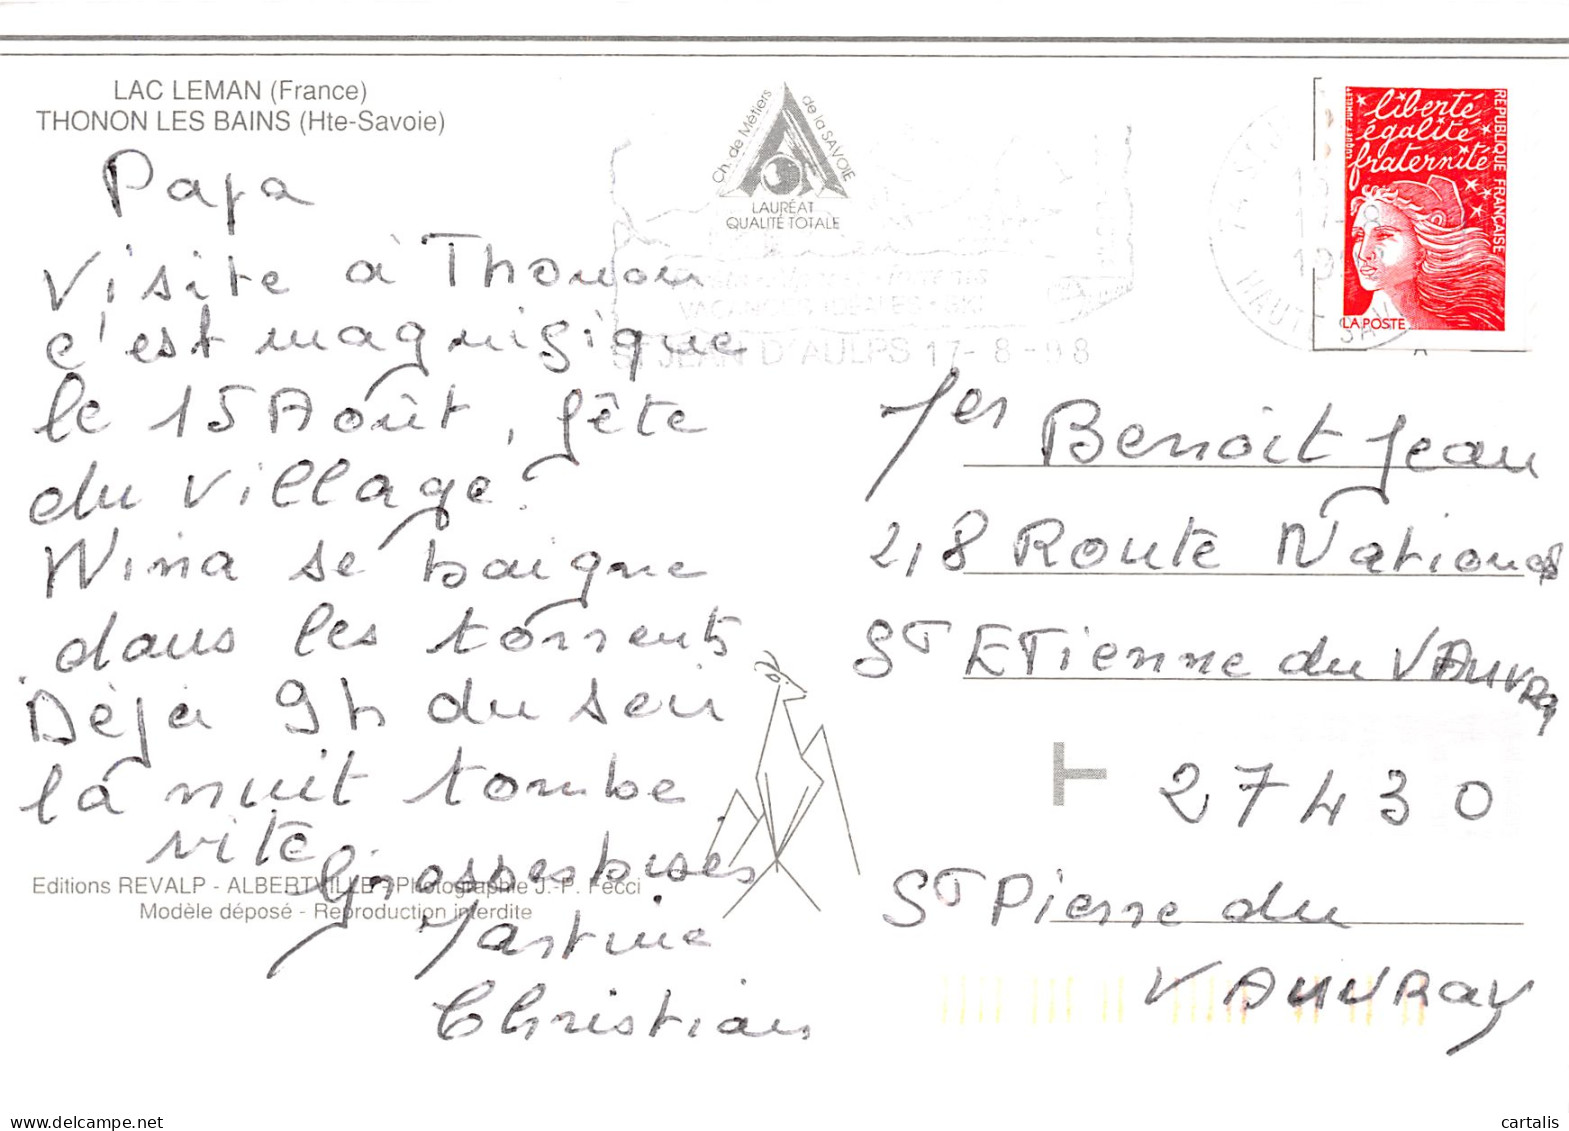 LAC LEMAN (France)
THONON LES BAINS (Hte-Savoie)
Papa
Visite à Thonon
c'est magnifique
le 15 Août, fête
du village.
Nina se baigne
dans les torrents
Déja 9h du soir
la nuit tombe
vite.
Grosses bises
Martine
Christian
Editions REVALP - ALBERTVILLE - Photographie J.-P. Fecci
Modèle déposé - Reproduction interdite
Ch. de Métiers de la SAVOIE
LAURÉAT
QUALITÉ TOTALE
ST JEAN D'AULPS 17-8-98
17-8
HAUTE-SAV
liberté
égalité
fraternité
REPUBLIQUE FRANÇAISE
LA POSTE
Benoit Jean
28 Route Nationale
ST ETienne du VAUVRAy
T 27430
ST Pierre du
VAUVRay
cartalis